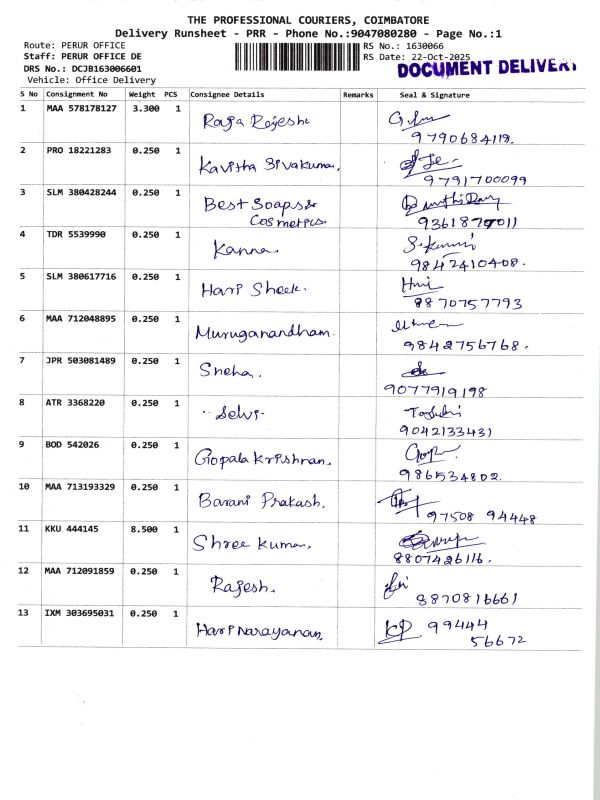 THE PROFESSIONAL COURIERS, COIMBATORE
Delivery Runsheet - PRR - Phone No.:9047080280 - Page No.:1
Route: PERUR OFFICE RS No.: 1630066
Staff: PERUR OFFICE DE RS Date: 22-Oct-2025
DRS No.: DCJB163006601 DOCUMENT DELIVERY
Vehicle: Office Delivery
S No Consignment No Weight PCS Consignee Details Remarks Seal & Signature
1 MAA 578178127 3.300 1 Raja Rajesh
9790684119.
2 PRO 18221283 0.250 1 Kavitha Sivakumar.
9791700099
3 SLM 380428244 0.250 1 Best Soaps &
Cosmetics.
4 TDR 5539990 0.250 1 Kanna.
9842410408.
5 SLM 380617716 0.250 1 Hari Sheek.
8870757793
6 MAA 712048895 0.250 1 Muruganandham.
9842756768.
7 JPR 503081489 0.250 1 Sneha.
9077919198
8 ATR 3368220 0.250 1 Selvi.
9042133431
9 BOD 542026 0.250 1 Gopala Krishnan.
986534802.
10 MAA 713193329 0.250 1 Barani Prakash.
97508 94448
11 KKU 444145 8.500 1 Shree Kumar.
8807426116.
12 MAA 712091859 0.250 1 Rajesh.
8870816661
13 IXM 303695031 0.250 1 Hari Narayanan, 99444
56672